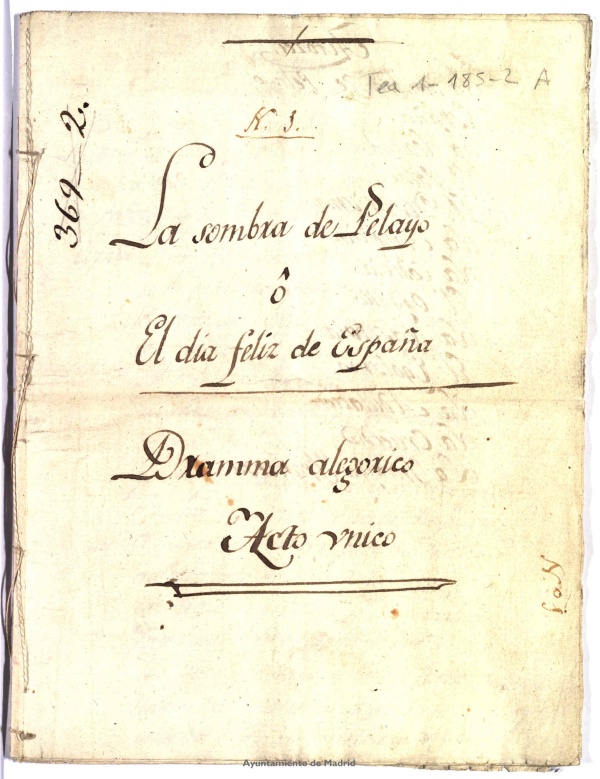 Tea 1-185-2 A
N. 1.
369 2.
La sombra de Pelayo
ô
El dia feliz de España
Dramma alegorico
Acto vnico
Ayuntamiento de Madrid